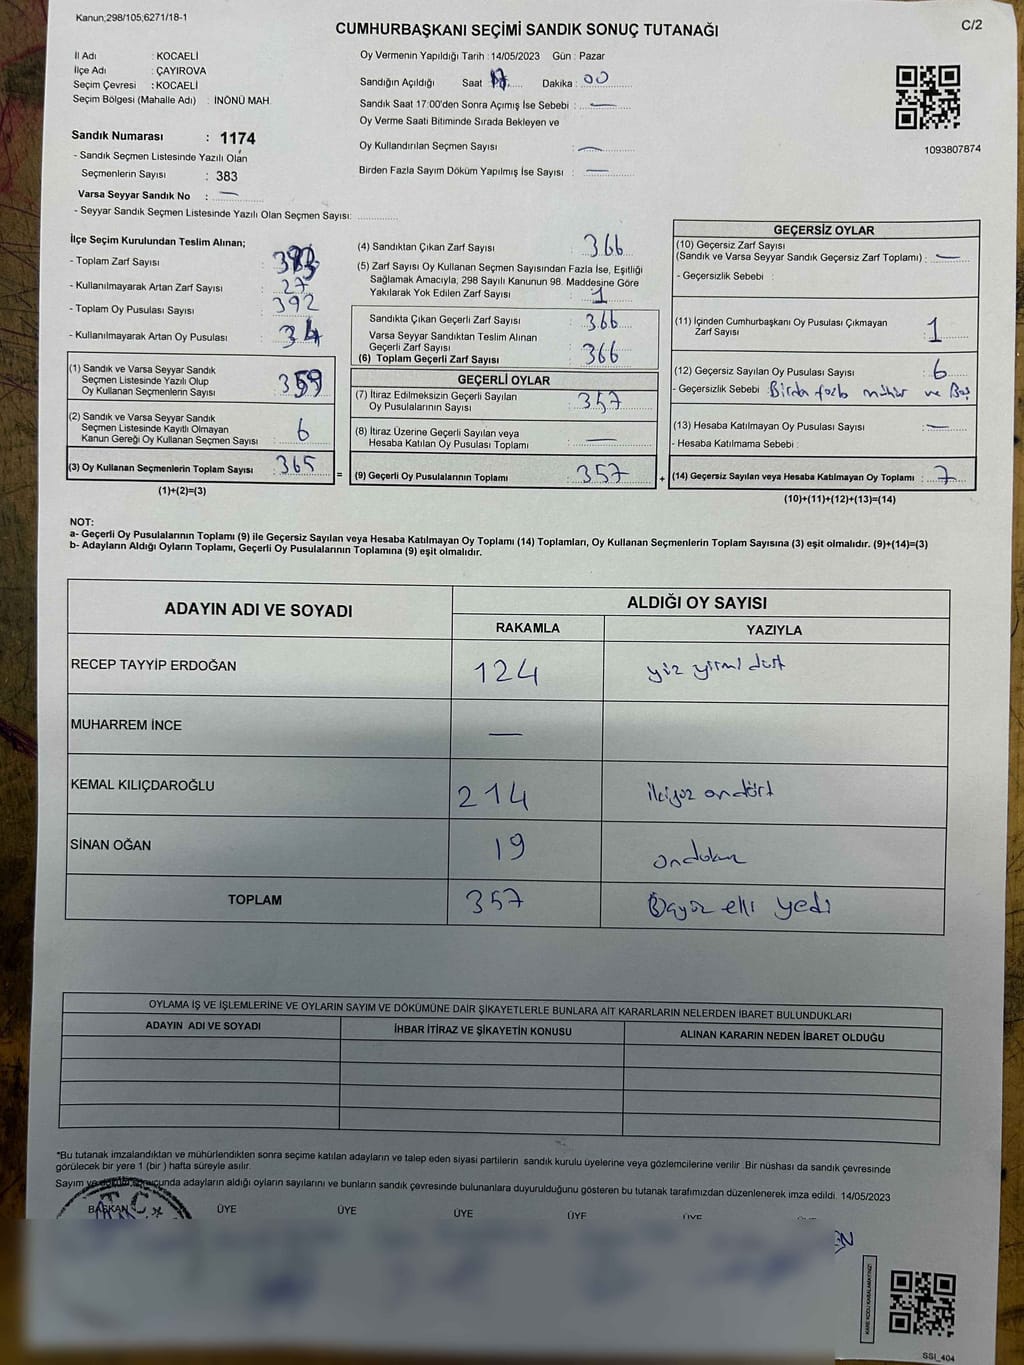 Kanun,298/105,6271/18-1
C/2
CUMHURBAŞKANI SEÇİMİ SANDIK SONUÇ TUTANAĞI
İl Adı : KOCAELİ
İlçe Adı : ÇAYIROVA
Seçim Çevresi : KOCAELİ
Seçim Bölgesi (Mahalle Adı) : İNÖNÜ MAH.
Sandık Numarası : 1174
- Sandık Seçmen Listesinde Yazılı Olan
Seçmenlerin Sayısı : 383
Varsa Seyyar Sandık No : —
- Seyyar Sandık Seçmen Listesinde Yazılı Olan Seçmen Sayısı:
Oy Vermenin Yapıldığı Tarih :14/05/2023 Gün : Pazar
Sandığın Açıldığı Saat Dakika : 00
Sandık Saat 17:00'den Sonra Açımış İse Sebebi : —
Oy Verme Saati Bitiminde Sırada Bekleyen ve
Oy Kullandırılan Seçmen Sayısı : —
Birden Fazla Sayım Döküm Yapılmış İse Sayısı : —
1093807874
İlçe Seçim Kurulundan Teslim Alınan;
- Toplam Zarf Sayısı :
- Kullanılmayarak Artan Zarf Sayısı : 27
- Toplam Oy Pusulası Sayısı : 392
- Kullanılmayarak Artan Oy Pusulası : 34
(1) Sandık ve Varsa Seyyar Sandık
Seçmen Listesinde Yazılı Olup
Oy Kullanan Seçmenlerin Sayısı : 359
(2) Sandık ve Varsa Seyyar Sandık
Seçmen Listesinde Kayıtlı Olmayan
Kanun Gereği Oy Kullanan Seçmen Sayısı : 6
(3) Oy Kullanan Seçmenlerin Toplam Sayısı : 365
(1)+(2)=(3)
(4) Sandıktan Çıkan Zarf Sayısı : 366
(5) Zarf Sayısı Oy Kullanan Seçmen Sayısından Fazla İse, Eşitliği
Sağlamak Amacıyla, 298 Sayılı Kanunun 98. Maddesine Göre
Yakılarak Yok Edilen Zarf Sayısı : 1
Sandıkta Çıkan Geçerli Zarf Sayısı : 366
Varsa Seyyar Sandıktan Teslim Alınan
Geçerli Zarf Sayısı
(6) Toplam Geçerli Zarf Sayısı : 366
GEÇERLİ OYLAR
(7) İtiraz Edilmeksizin Geçerli Sayılan
Oy Pusulalarının Sayısı : 357
(8) İtiraz Üzerine Geçerli Sayılan veya
Hesaba Katılan Oy Pusulası Toplamı : —
= (9) Geçerli Oy Pusulalarının Toplamı : 357
GEÇERSİZ OYLAR
(10) Geçersiz Zarf Sayısı
(Sandık ve Varsa Seyyar Sandık Geçersiz Zarf Toplamı) : —
- Geçersizlik Sebebi :
(11) İçinden Cumhurbaşkanı Oy Pusulası Çıkmayan
Zarf Sayısı : 1
(12) Geçersiz Sayılan Oy Pusulası Sayısı : 6
- Geçersizlik Sebebi : Birden fazla mühür ve Boş
(13) Hesaba Katılmayan Oy Pusulası Sayısı : —
- Hesaba Katılmama Sebebi :
+ (14) Geçersiz Sayılan veya Hesaba Katılmayan Oy Toplamı : 7
(10)+(11)+(12)+(13)=(14)
NOT:
a- Geçerli Oy Pusulalarının Toplamı (9) ile Geçersiz Sayılan veya Hesaba Katılmayan Oy Toplamı (14) Toplamları, Oy Kullanan Seçmenlerin Toplam Sayısına (3) eşit olmalıdır. (9)+(14)=(3)
b- Adayların Aldığı Oyların Toplamı, Geçerli Oy Pusulalarının Toplamına (9) eşit olmalıdır.
ADAYIN ADI VE SOYADI ALDIĞI OY SAYISI
RAKAMLA YAZIYLA
RECEP TAYYİP ERDOĞAN 124 yüz yirmi dört
MUHARREM İNCE —
KEMAL KILIÇDAROĞLU 214 ikiyüz ondört
SİNAN OĞAN 19 ondokuz
TOPLAM 357 Üçyüz elli yedi
OYLAMA İŞ VE İŞLEMLERİNE VE OYLARIN SAYIM VE DÖKÜMÜNE DAİR ŞİKAYETLERLE BUNLARA AİT KARARLARIN NELERDEN İBARET BULUNDUKLARI
ADAYIN ADI VE SOYADI İHBAR İTİRAZ VE ŞİKAYETİN KONUSU ALINAN KARARIN NEDEN İBARET OLDUĞU
*Bu tutanak imzalandıktan ve mühürlendikten sonra seçime katılan adayların ve talep eden siyasi partilerin sandık kurulu üyelerine veya gözlemcilerine verilir .Bir nüshası da sandık çevresinde
görülecek bir yere 1 (bir ) hafta süreyle asılır.
Sayım ve döküm sonucunda adayların aldığı oyların sayılarını ve bunların sandık çevresinde bulunanlara duyurulduğunu gösteren bu tutanak tarafımızdan düzenlenerek imza edildi. 14/05/2023
T.C.
BAŞKAN ÜYE ÜYE ÜYE ÜYE ÜYE
KARE KODU KARALAMAYINIZ!
SSI_404